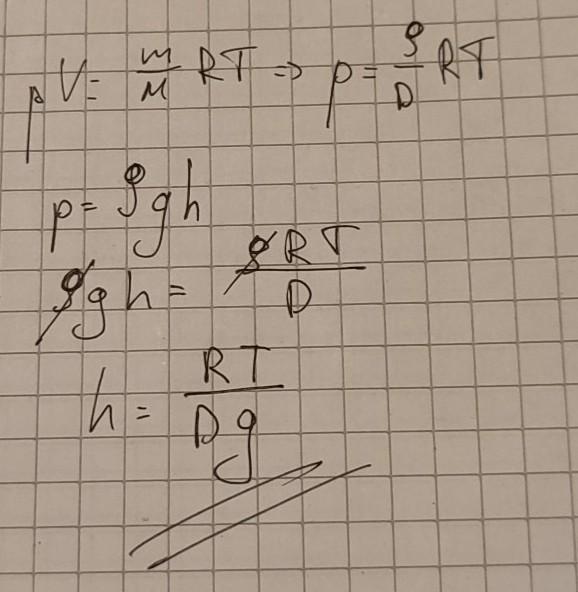 pV = m/M RT => p = ρ/D RT
p = ρgh
ρgh = ρRT/D
h = RT/Dg